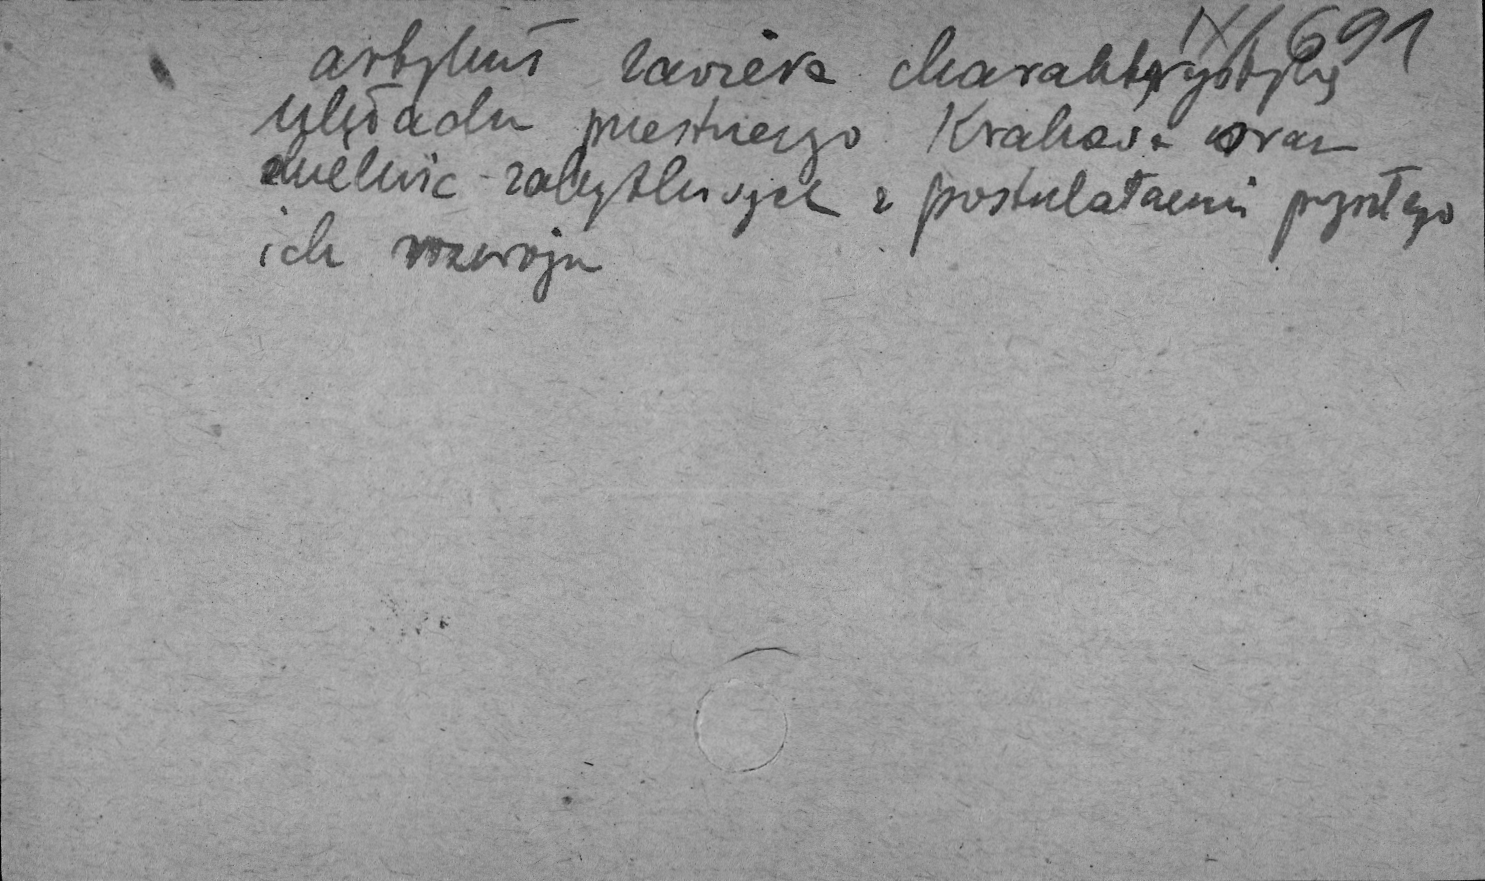 IX/691
artykuł zawiera charakterystykę
układu przestrzennego Krakowa oraz
dzielnic zabytkowych z postulatami przyszłego
ich rozwoju